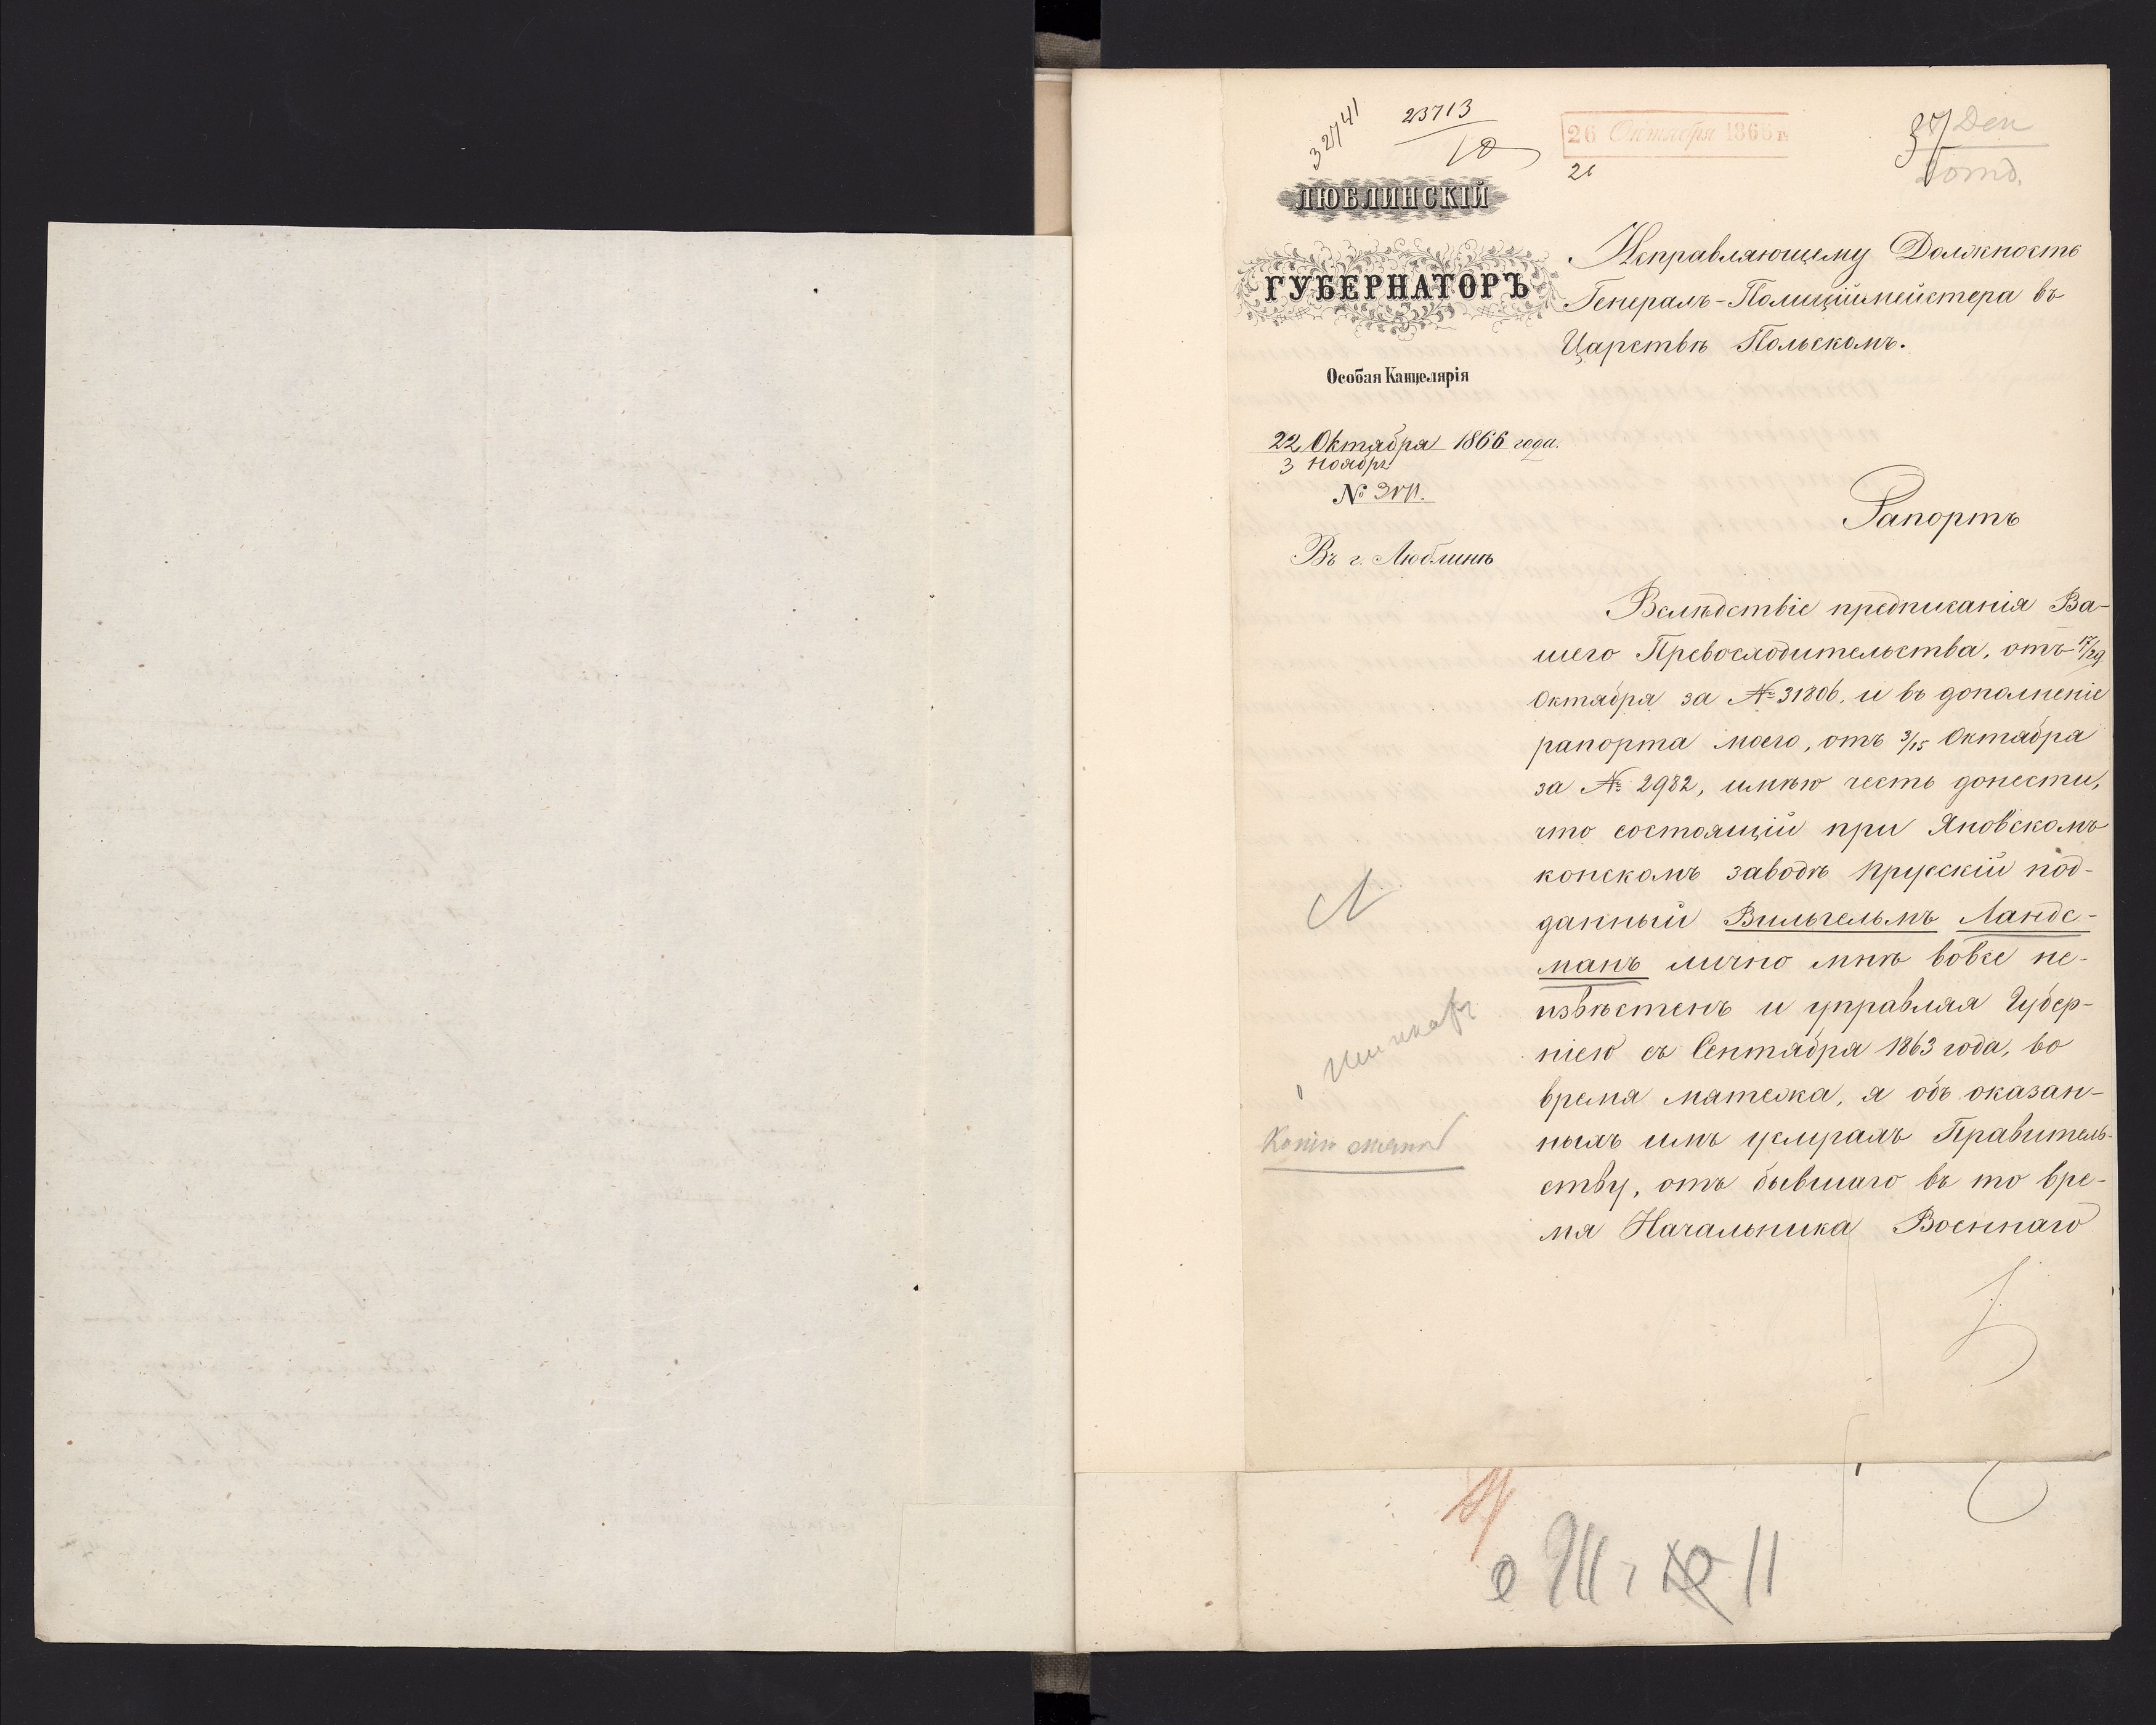 32741
23713
10
26 Октября 1866 г.
26
37 Ден
ЛЮБЛИНСКІЙ
ГУБЕРНАТОРЪ
Особая Канцелярія
22 Октября 1866 года.
3 Ноября
№
Въ г. Люблинѣ
Исправляющему Должность
Генералъ-Полиціймейстера въ
Царствѣ Польскомъ.
Рапортъ
Вслѣдствіе предписанія Ва-
шего Превосходительства, отъ 17/29
Октября за № 31806, и въ дополненіе
рапорта моего, отъ 3/15 Октября
за № 2982, имѣю честь донести,
что состоящій при Яновскомъ
конскомъ заводѣ прусскій под-
данный Вильгельмъ Ландс-
манъ лично мнѣ вовсе не-
извѣстенъ и управляя Губер-
ніею съ Сентября 1863 года, во
время мятежа, я объ оказан-
ныхъ имъ услугахъ Правитель-
ству, отъ бывшаго въ то вре-
мя Начальника Военнаго
Копію
11